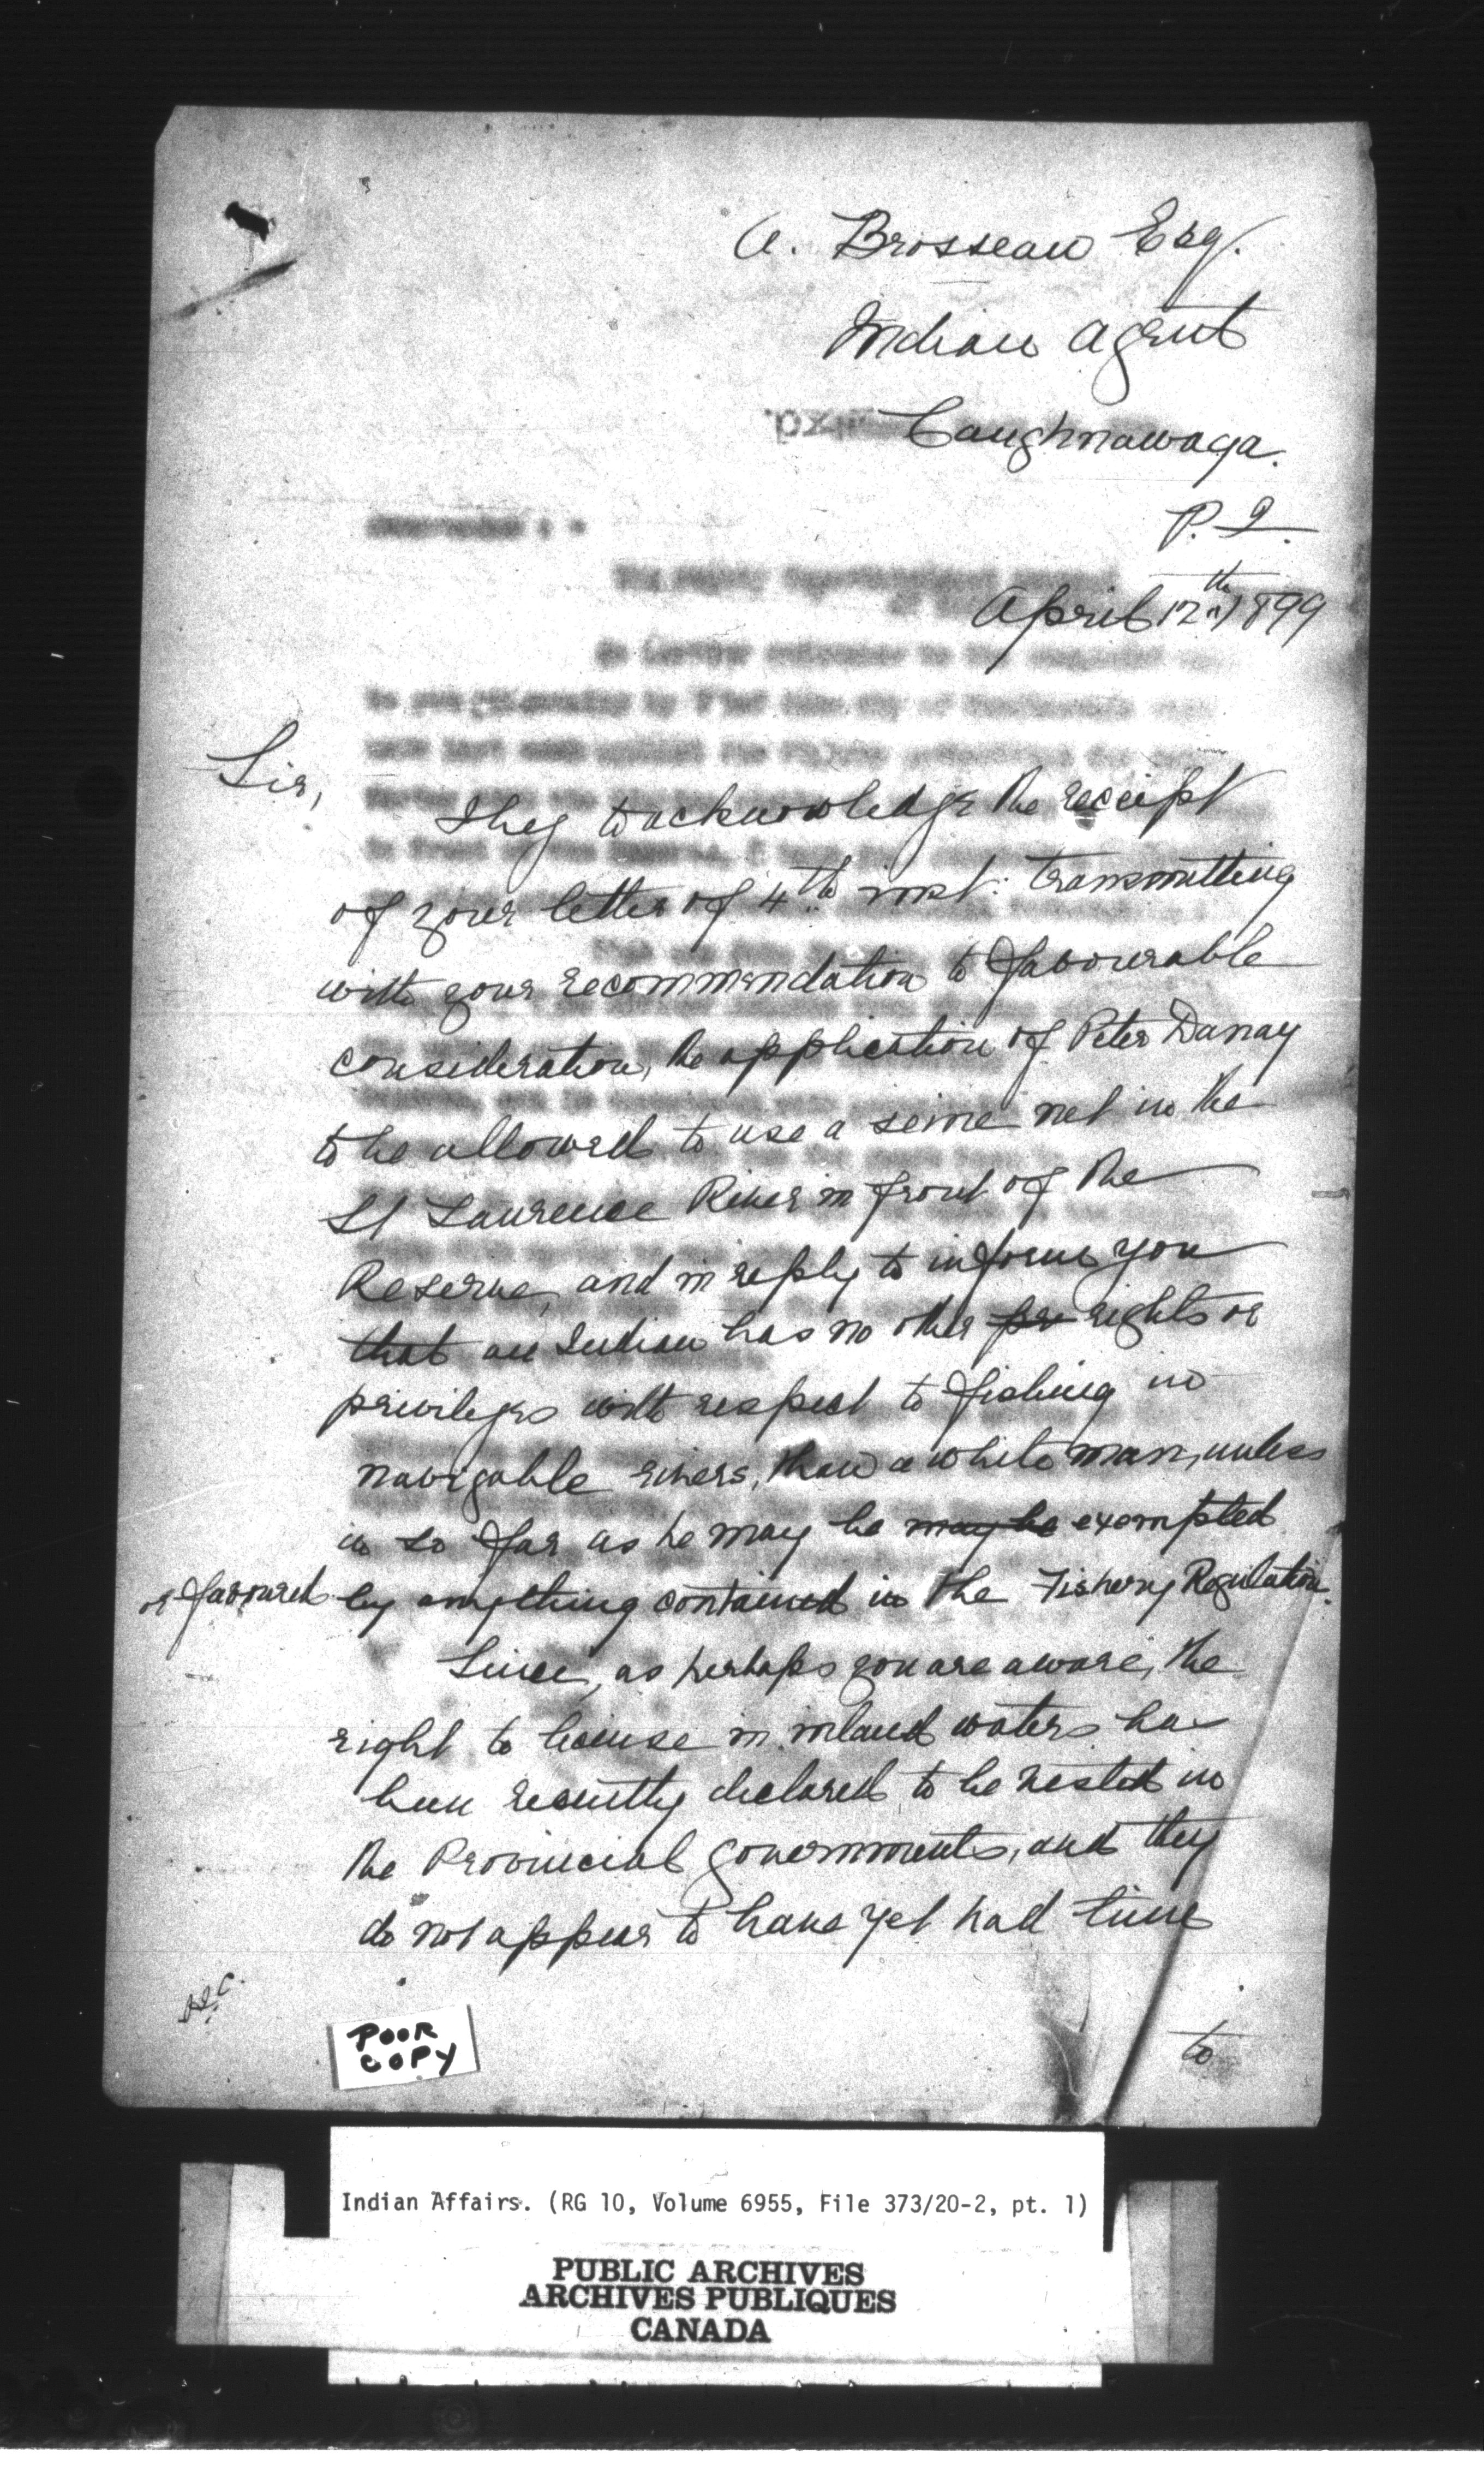 A. Brosseau Esq.
Indian Agent
Caughnawaga.
P. Q.
April 12th 1899
Sir,
I beg to acknowledge the receipt
of your letter of 4th inst: transmitting
with your recommendation to favourable
consideration, the application of Peter Dunay
to be allowed to use a seine net in the
St Laurence River in front of the
Reserve, and in reply to inform you
that an Indian has no other pr rights or
privileges with respect to fishing in
navigable rivers, than a white man, unless
in so far as he may be may be exempted
or favoured by anything contained in the Fishery Regulation.
Since, as perhaps you are aware, the
right to license in inland waters has
been recently declared to be vested in
the Provincial Governments, and they
do not appear to have yet had time
to
POOR
COPY
Indian Affairs. (RG 10, Volume 6955, File 373/20-2, pt. 1)
PUBLIC ARCHIVES
ARCHIVES PUBLIQUES
CANADA